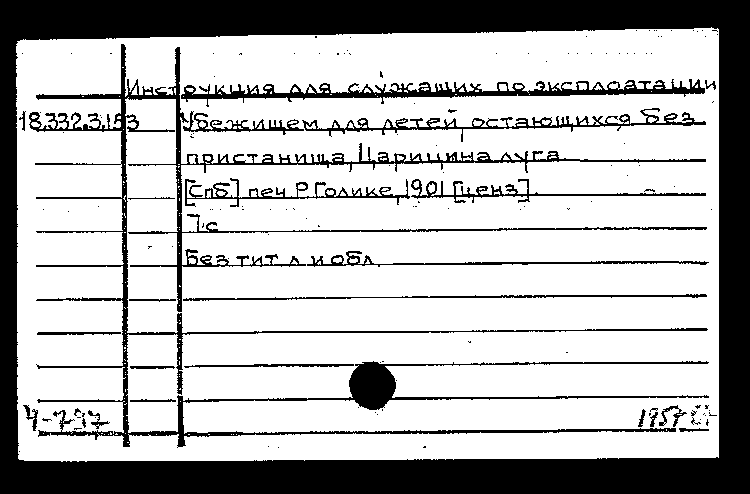 Инструкция для служащих по эксплоатации
18.332.3.153 Убежищем для детей, остающихся без
пристанища, Царицина луга.
[Спб] печ. Р. Голике, 1901 [ценз].
7 с.
Без тит. л. и обл.
Ч-797 1957